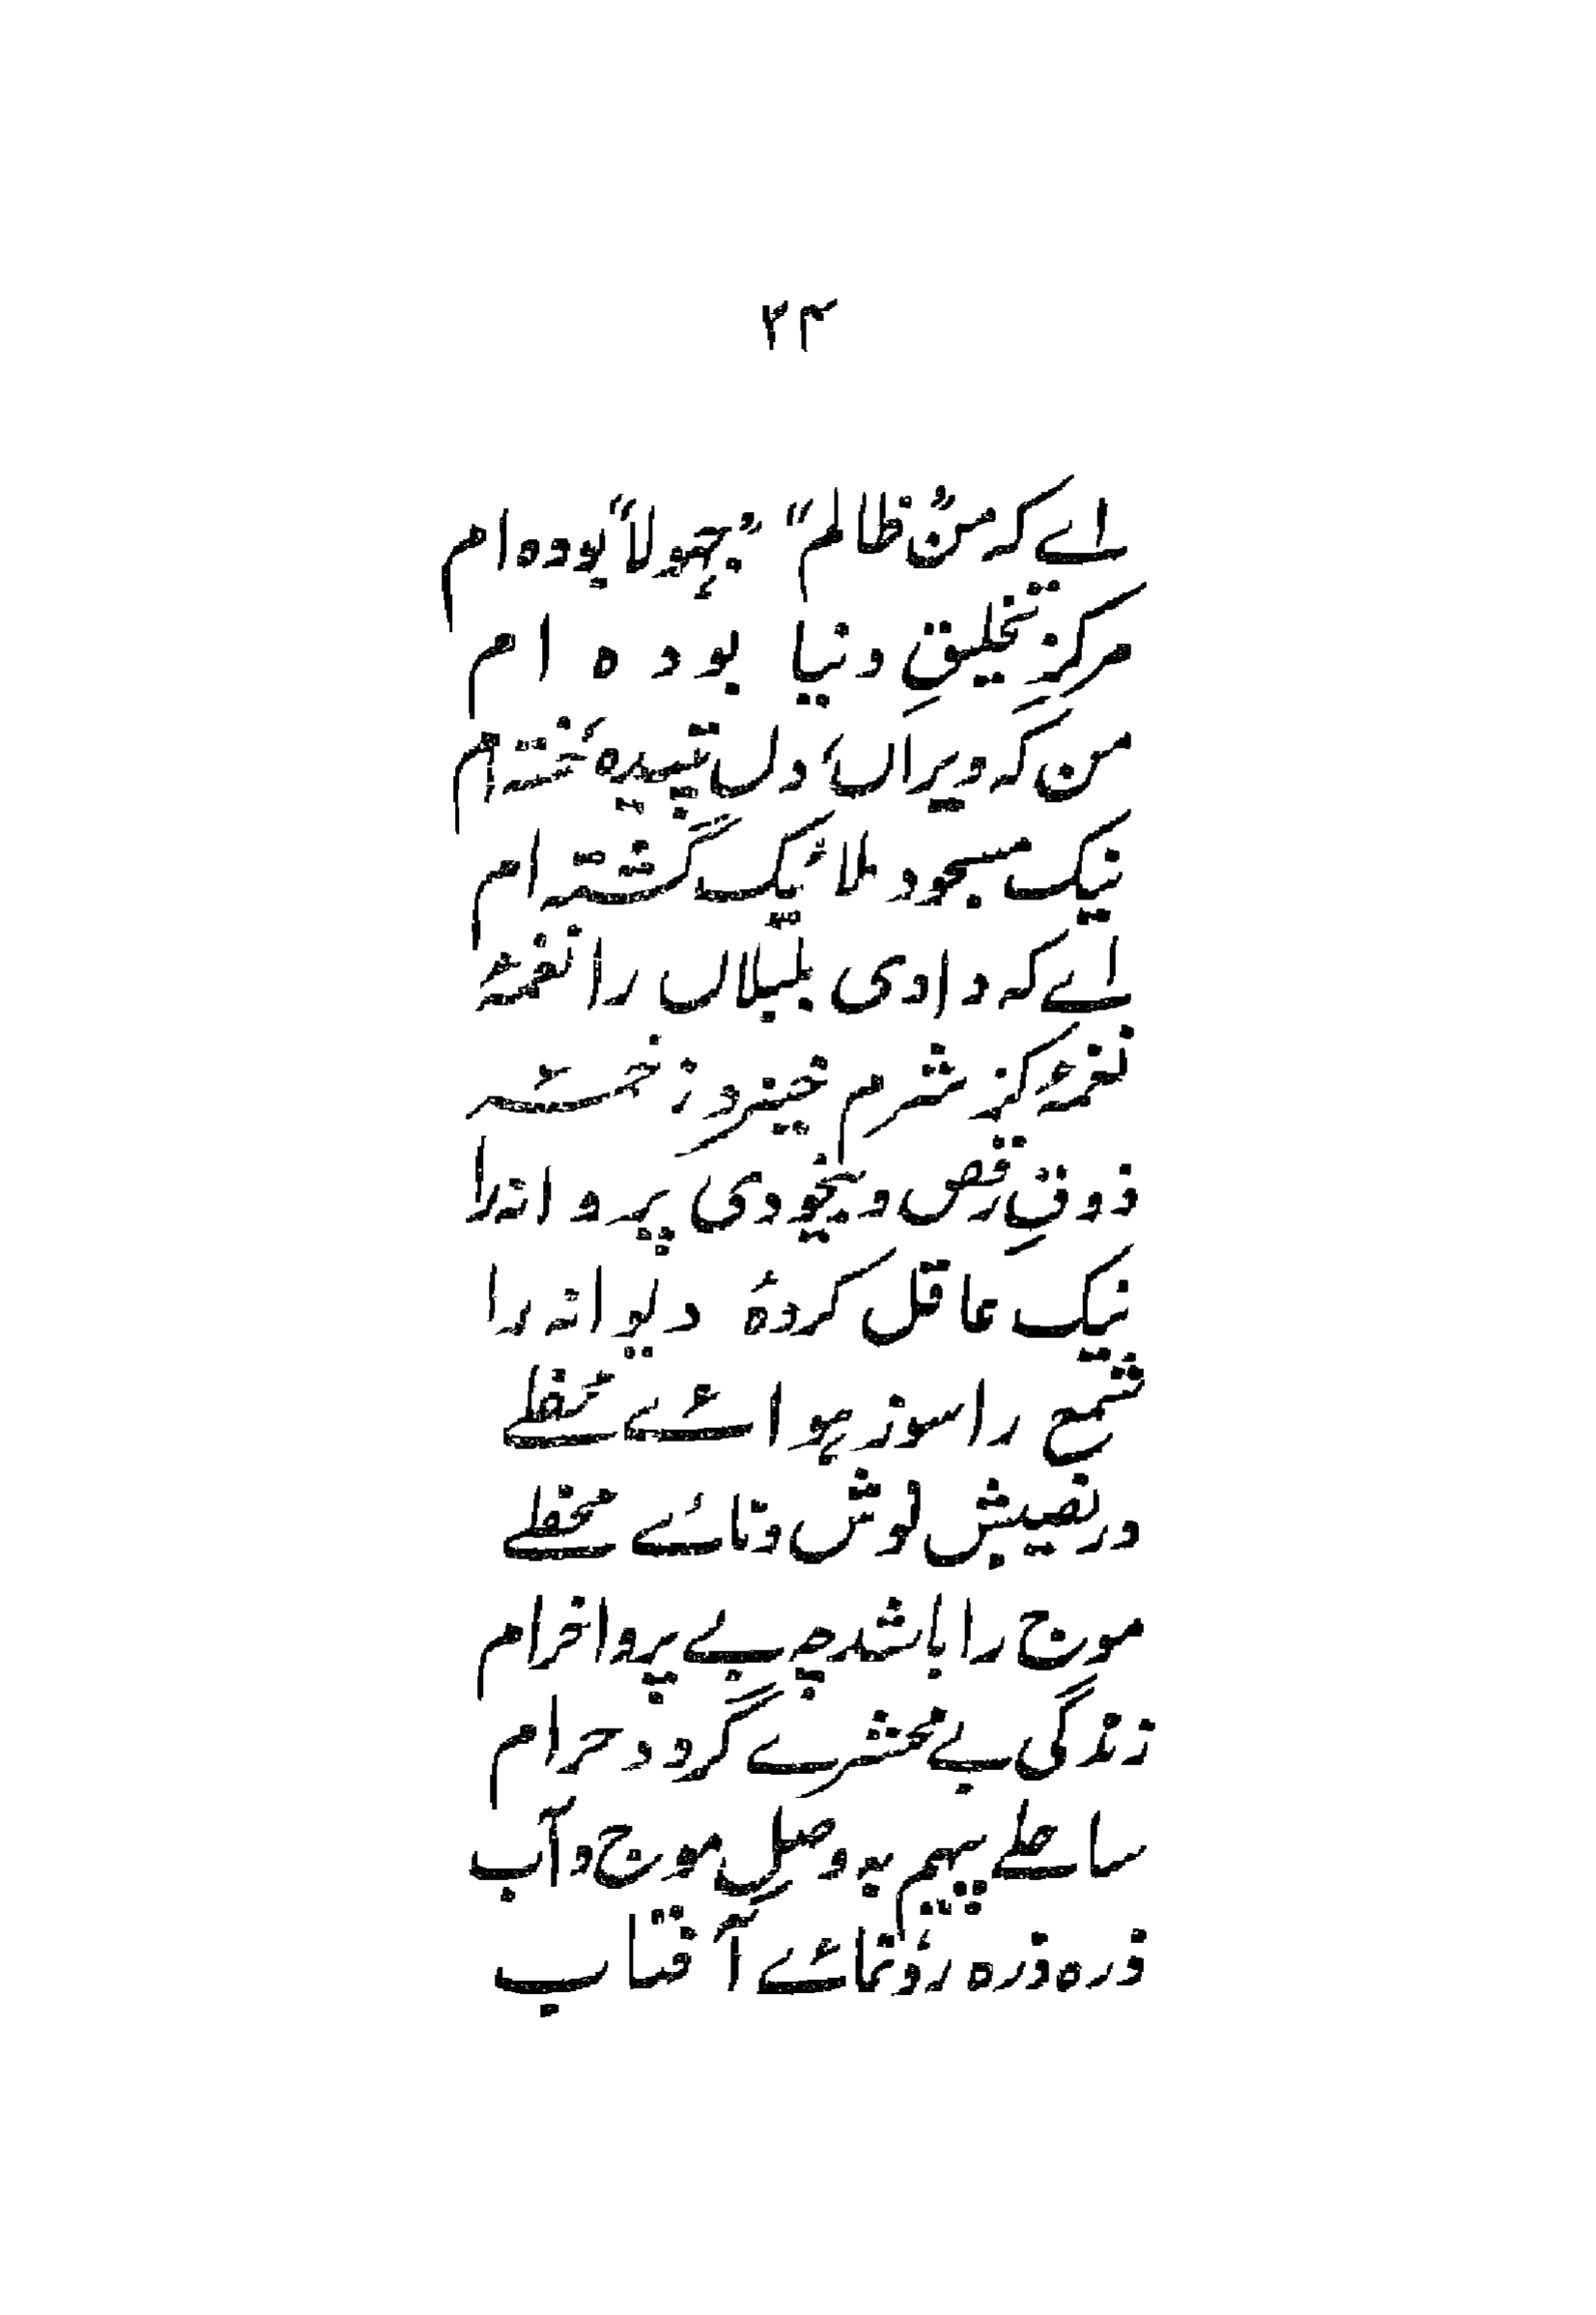 ۲۴
اے کہ من "ظالم" "جہولاً" بودہ ام
مرکزِ تخلیقِ دنیا بودہ ام
من کہ ویراں، دل تپیدہ، خستہ ام
نیک مسجود ملائیک گشتہ ام
اے کہ دادی بلبلاں را نغمۂ
نغمۂ کز شرم خیزد زخمۂ
ذوقِ رقص و بیخودی پروانہ را
نیک عاقل کردۂ دیوانہ را
شمع را سوز ہوائے محفلے
در نصیبش نوش و نائے محفلے
موج را باشد چہ بے پروا خرام
زندگی بے محشرے گردد حرام
ساحلے پیہم بہ وصلِ موج و آب
ذرہ ذرہ رُونمائے آفتاب